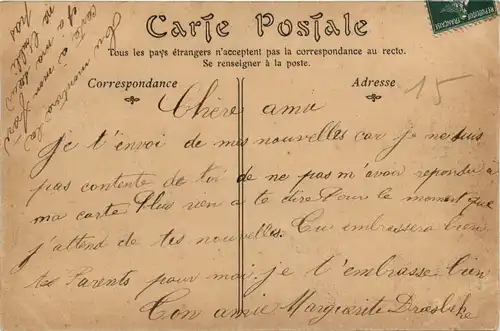 Carte Postale
Tous les pays étrangers n'acceptent pas la correspondance au recto.
Se renseigner à la poste.
Correspondance
Adresse
15
Chère amie
Je t'envoi de mes nouvelles car je ne suis
pas contente de toi de ne pas m'avoir repondu a
ma carte Plus rien a te dire Pour le moment que
j'attend de tes nouvelles. Tu embrassera bien
tes Parents pour moi, je t'embrasse bien
Ton amie Margueritte
Tu montrera la
carte a mon